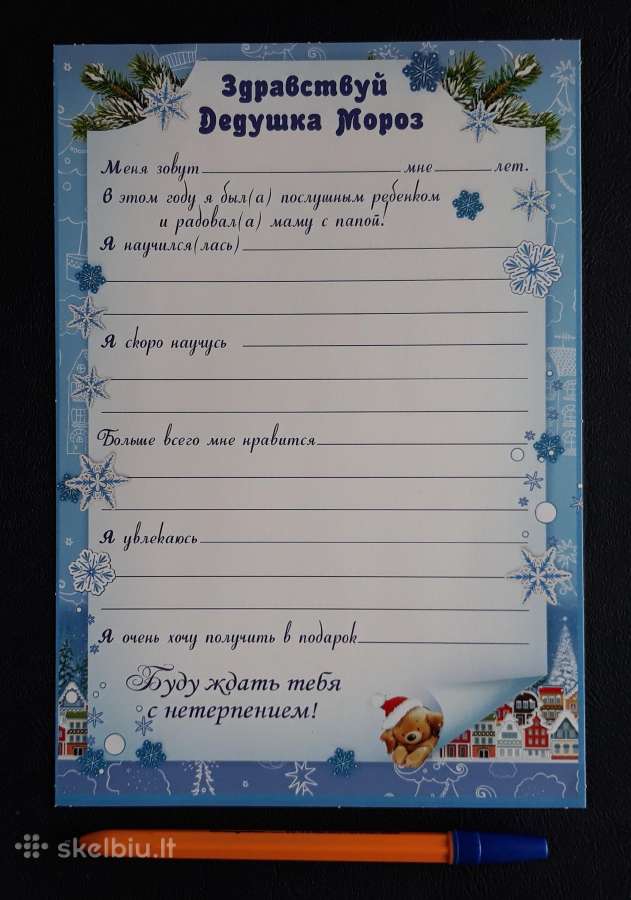 Здравствуй
Дедушка Мороз
Меня зовут мне лет.
В этом году я был(а) послушным ребенком
и радовал(а) маму с папой!
Я научился(лась)
Я скоро научусь
Больше всего мне нравится
Я увлекаюсь
Я очень хочу получить в подарок
Буду ждать тебя
с нетерпением!
skelbiu.lt